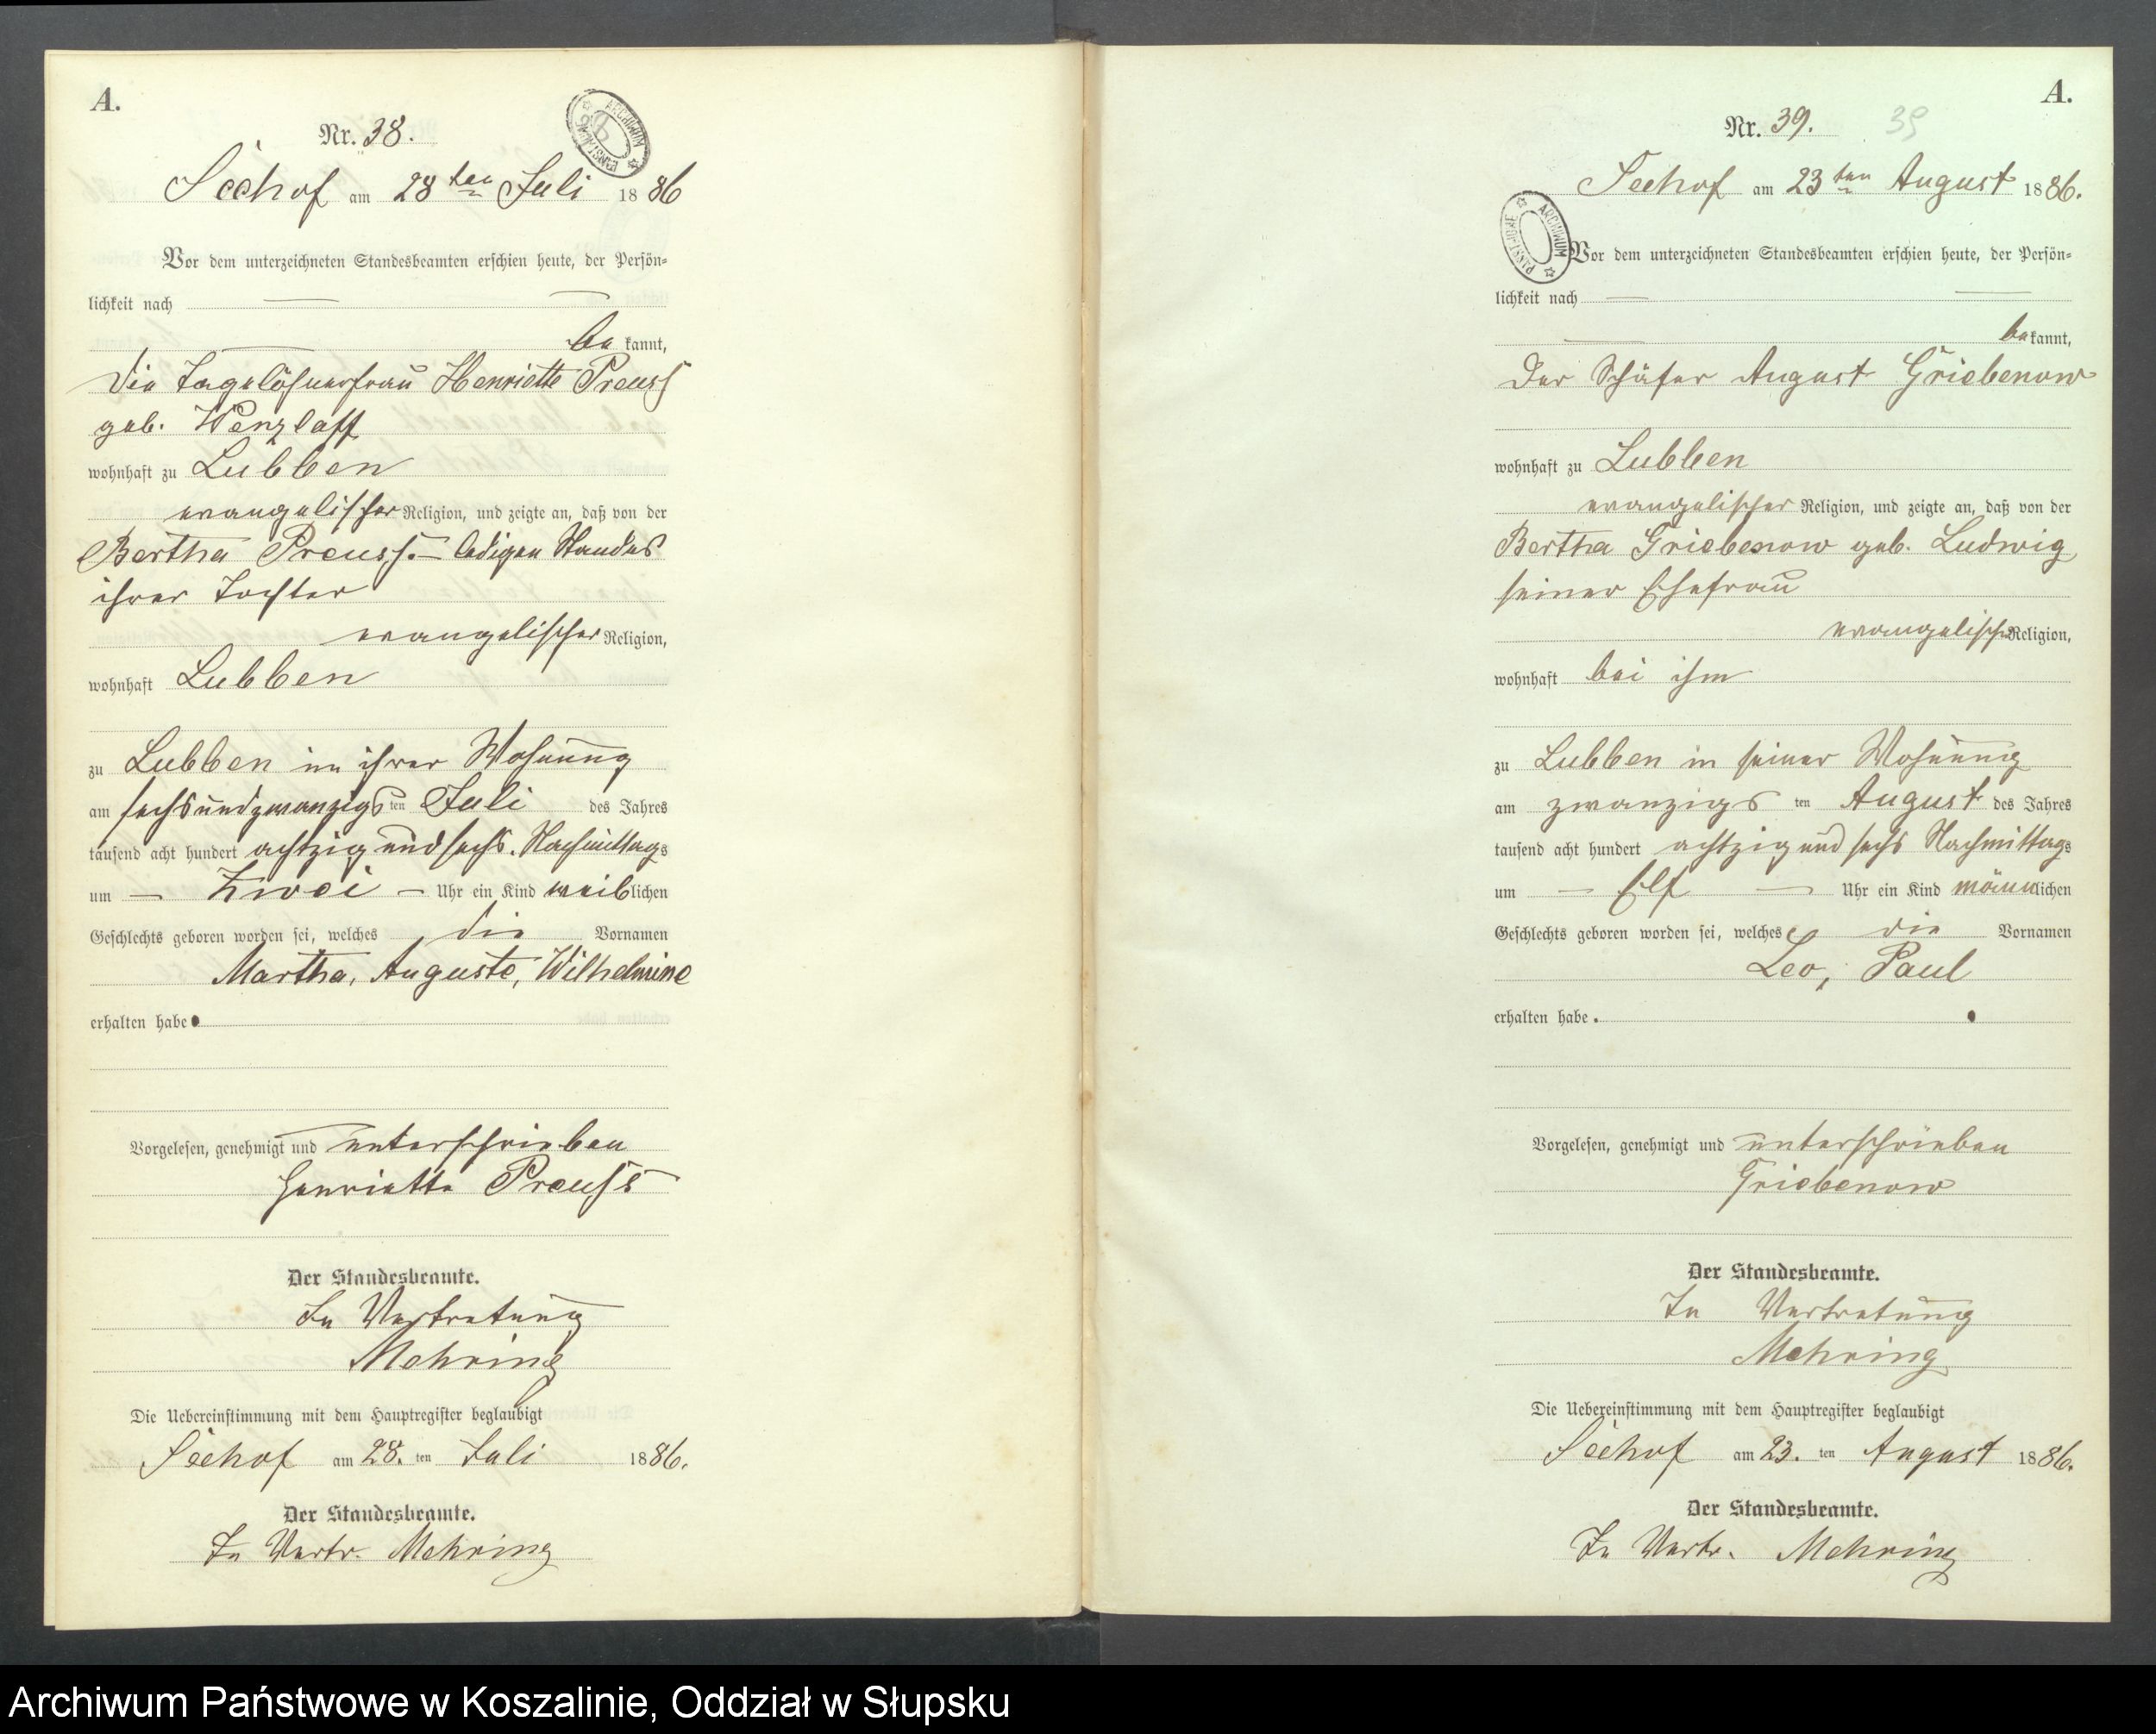 A.
Nr. 38.
ARCHIWUM PAŃSTWOWE
Seehof am 28ten Juli 1886
Vor dem unterzeichneten Standesbeamten erschien heute, der Persön=
lichkeit nach
be kannt,
die Tagelöhnerfrau Henriette Preuss
geb. Wenzlaff
wohnhaft zu Lubben
evangelischer Religion, und zeigte an, daß von der
Bertha Preuss. – ledigen Standes
ihrer Tochter
evangelischer Religion,
wohnhaft Lubben
zu Lubben in ihrer Wohnung
am sechsundzwanzigs ten Juli des Jahres
tausend acht hundert achtzig und sechs. Nachmittags
um – Zwei – Uhr ein Kind weiblichen
Geschlechts geboren worden sei, welches die Vornamen
Martha, Auguste, Wilhelmine
erhalten habe.
Vorgelesen, genehmigt und unterschrieben
Henriette Preuss
Der Standesbeamte.
In Vertretung
Mehring
Die Uebereinstimmung mit dem Hauptregister beglaubigt
Seehof am 28. ten Juli 1886.
Der Standesbeamte.
In Vertr. Mehring
A.
Nr. 39. 39
Seehof am 23ten August 1886.
ARCHIWUM PAŃSTWOWE
Vor dem unterzeichneten Standesbeamten erschien heute, der Persön=
lichkeit nach
be kannt,
der Schäfer August Griebenow
wohnhaft zu Lubben
evangelischer Religion, und zeigte an, daß von der
Bertha Griebenow geb. Ludwig
seiner Ehefrau
evangelischer Religion,
wohnhaft bei ihm
zu Lubben in seiner Wohnung
am zwanzigs ten August des Jahres
tausend acht hundert achtzig und sechs Nachmittags
um – Elf – Uhr ein Kind männlichen
Geschlechts geboren worden sei, welches die Vornamen
Leo, Paul
erhalten habe.
Vorgelesen, genehmigt und unterschrieben
Griebenow
Der Standesbeamte.
In Vertretung
Mehring
Die Uebereinstimmung mit dem Hauptregister beglaubigt
Seehof am 23. ten August 1886.
Der Standesbeamte.
In Vertr. Mehring
Archiwum Państwowe w Koszalinie, Oddział w Słupsku